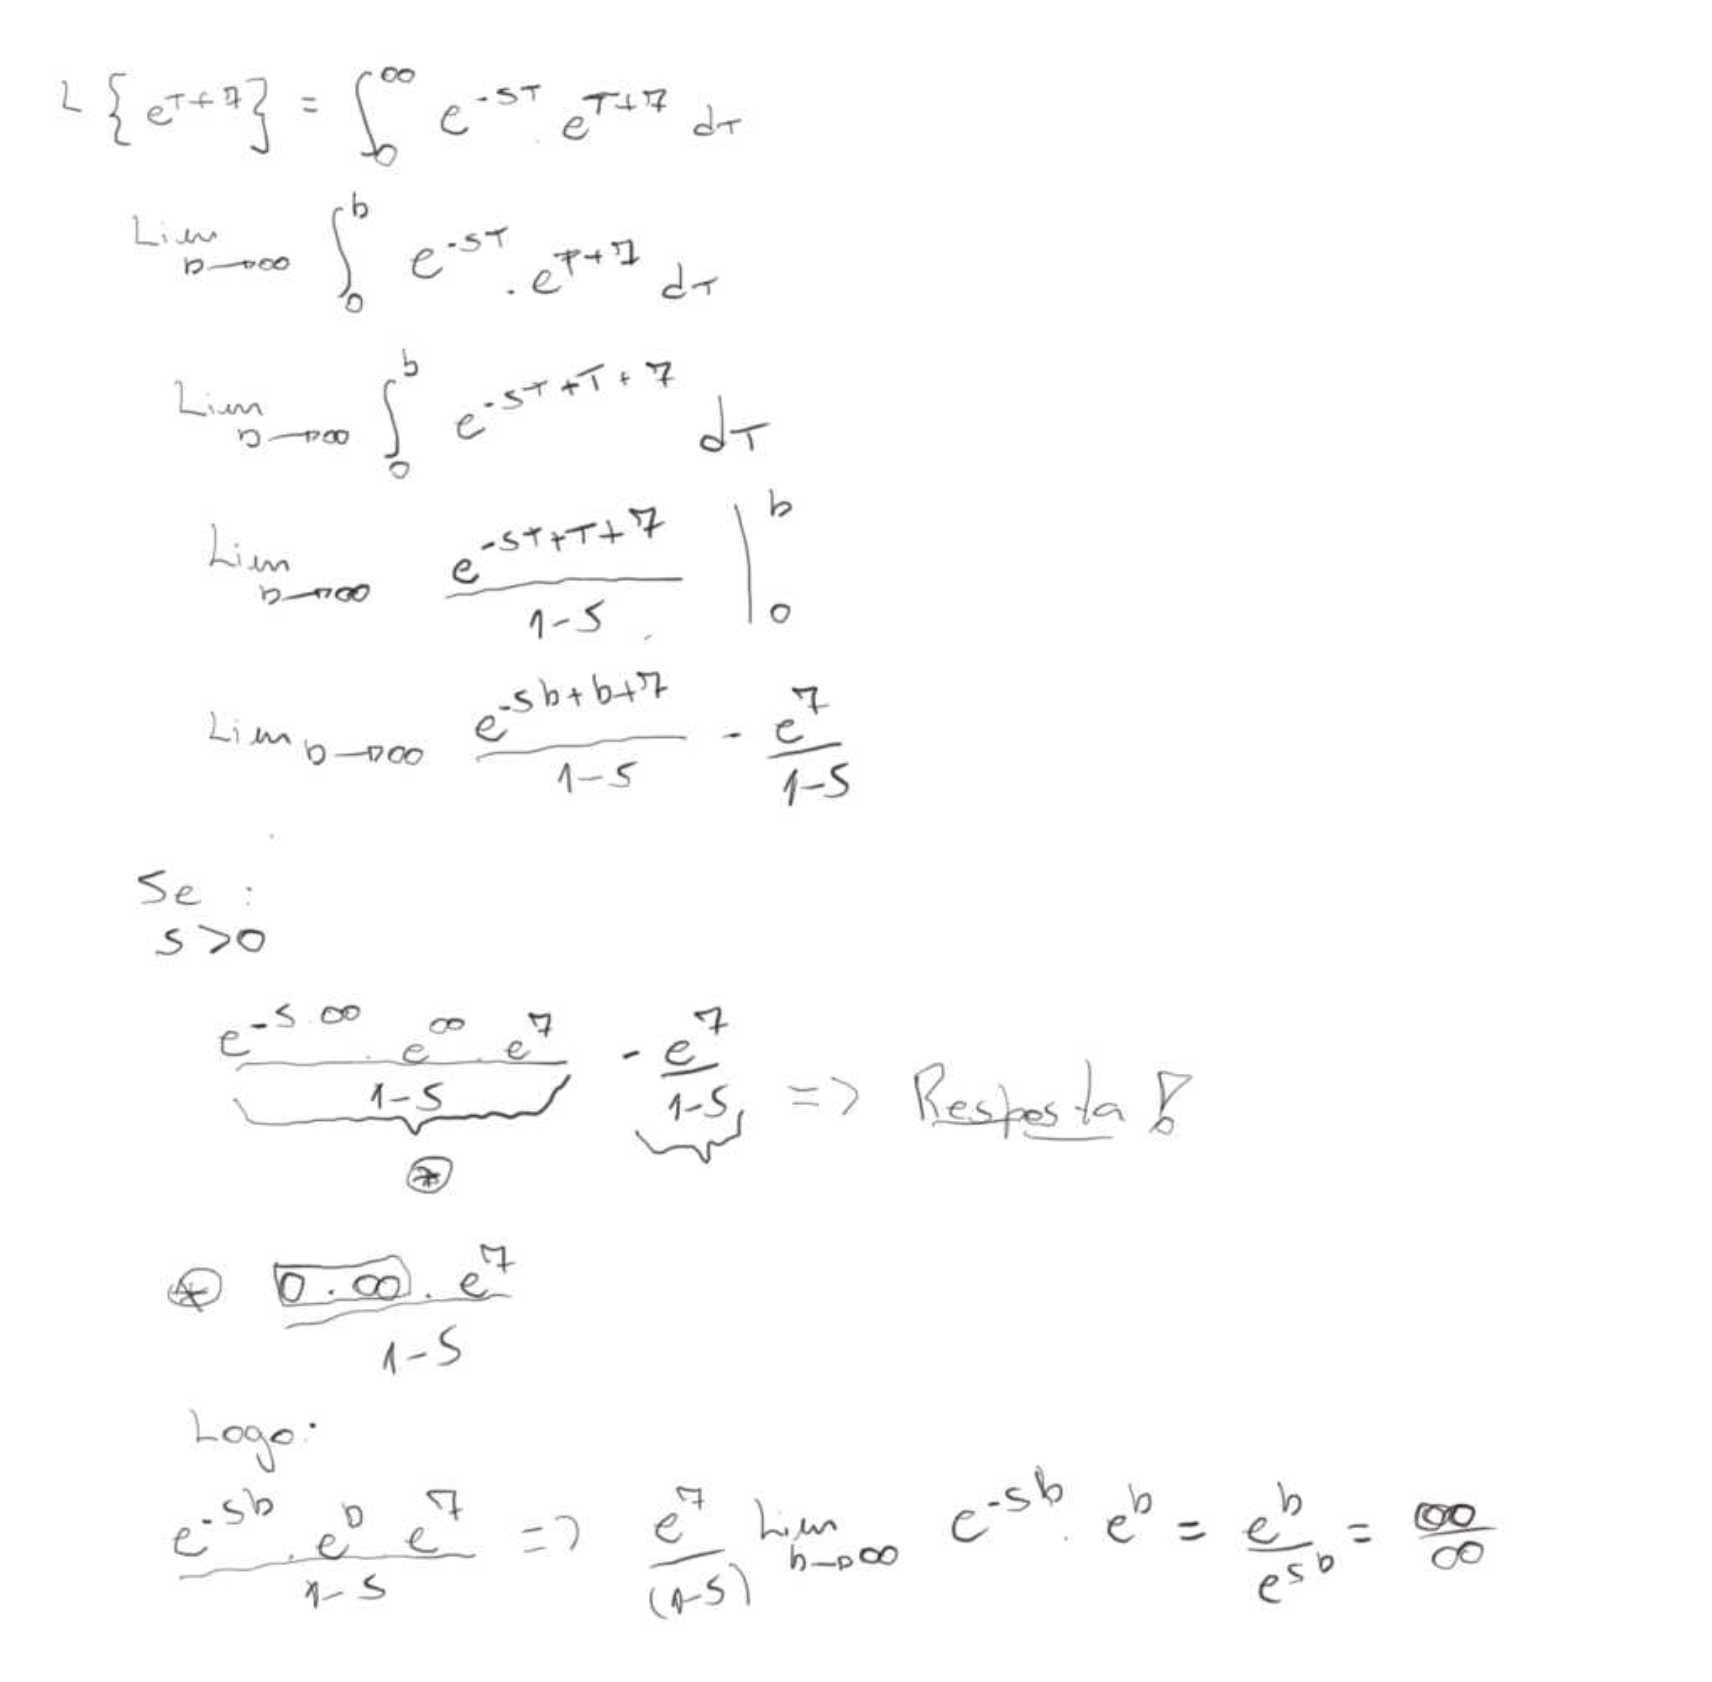 L { e^{T+7} } = ∫_0^∞ e^{-sT} . e^{T+7} dT
Lim_{b→∞} ∫_0^b e^{-sT} . e^{T+7} dT
Lim_{b→∞} ∫_0^b e^{-sT+T+7} dT
Lim_{b→∞} e^{-sT+T+7}/(1-s) |_0^b
Lim_{b→∞} e^{-sb+b+7}/(1-s) - e^7/(1-s)
Se :
s>0
e^{-s.∞} . e^∞ . e^7/(1-s) - e^7/(1-s) => Resposta !
⊛
⊛ 0.∞ . e^7/(1-s)
Logo:
e^{-sb} . e^b e^7/(1-s) => e^7/(1-s) Lim_{b→∞} e^{-sb} . e^b = e^b/e^{sb} = ∞/∞